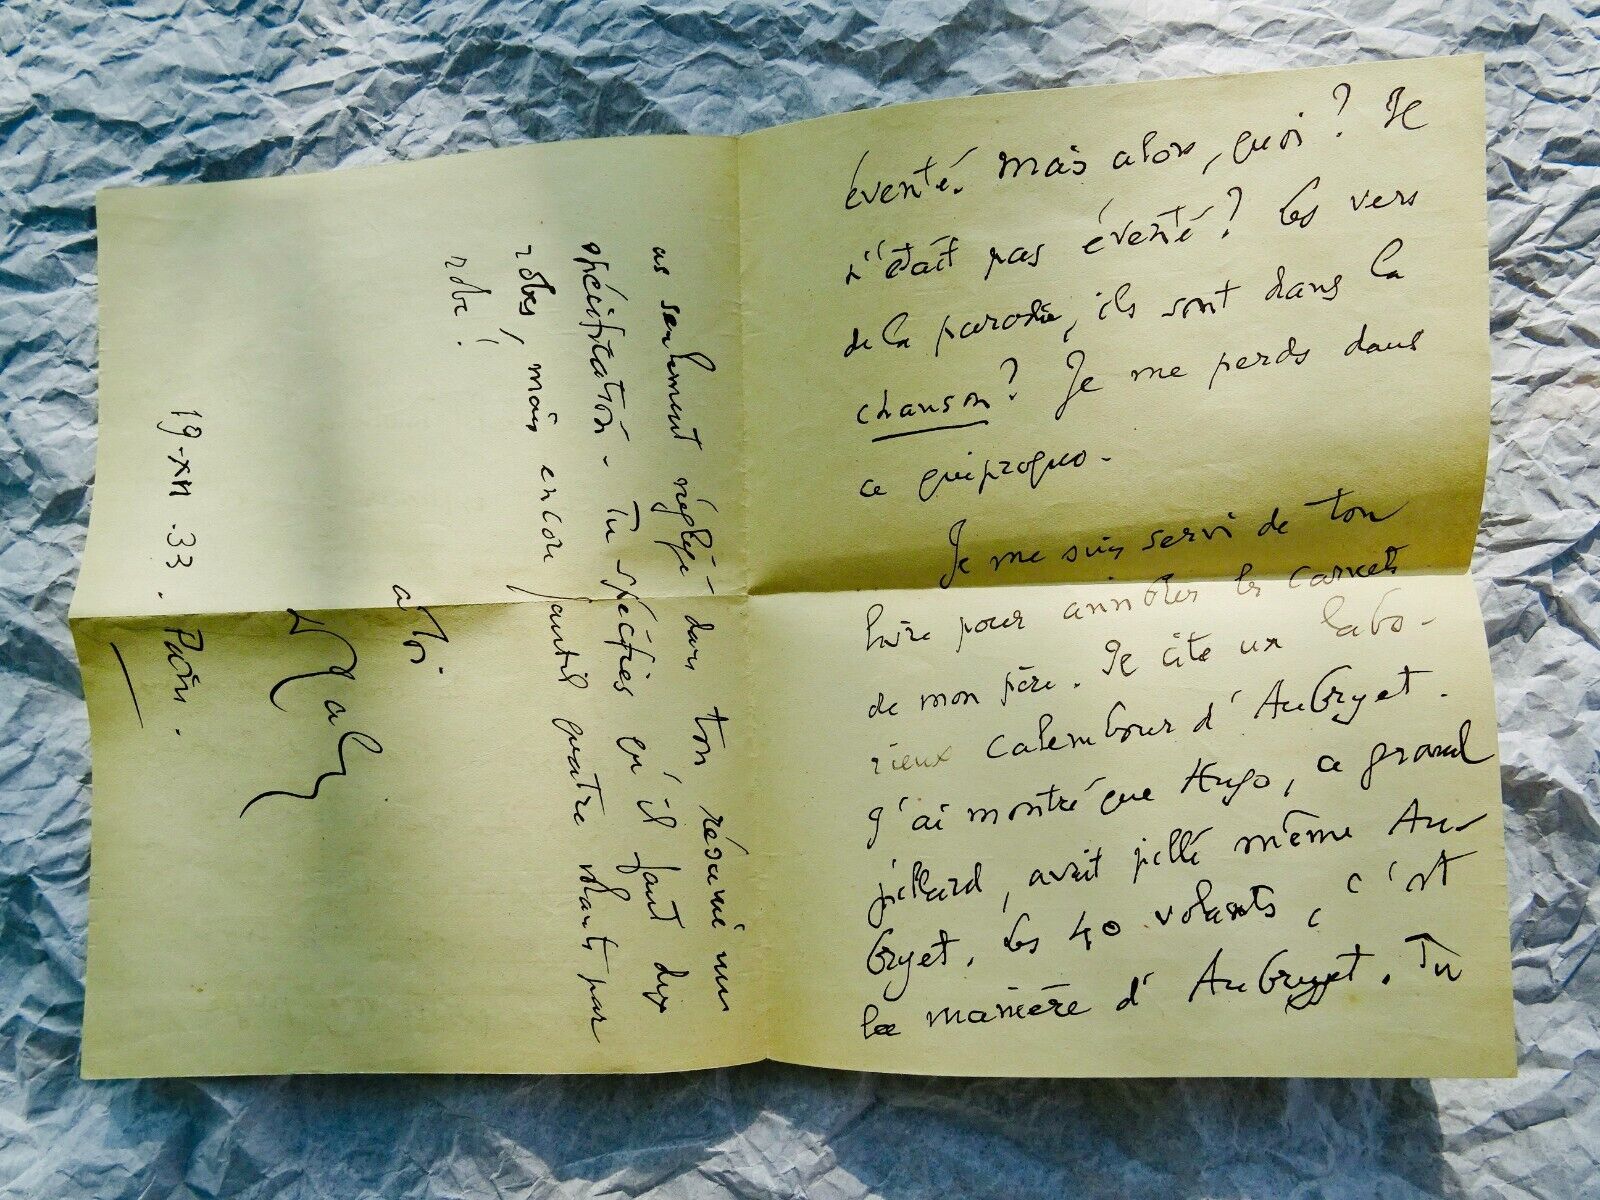 éventé. Mais alors, quoi ? Ce
n'était pas éventé ? Les vers
de la parodie, ils sont dans la
chanson ? Je me perds dans
ce quiproquo.
Je me suis servi de ton
livre pour annoter les carnets
de mon père. Je cite un labo-
rieux calembour d'Aubryet.
J'ai montré que Hugo, ce grand
pillard, avait pillé même Au-
bryet. Les 40 volants, c'est
la manière d'Aubryet. Tu
as seulement négligé dans ton résumé une
spécification. Tu spécifies qu'il faut dix
robes, mais encore faut-il quatre volants par
robe !
à toi
19.XII.33. Paris.